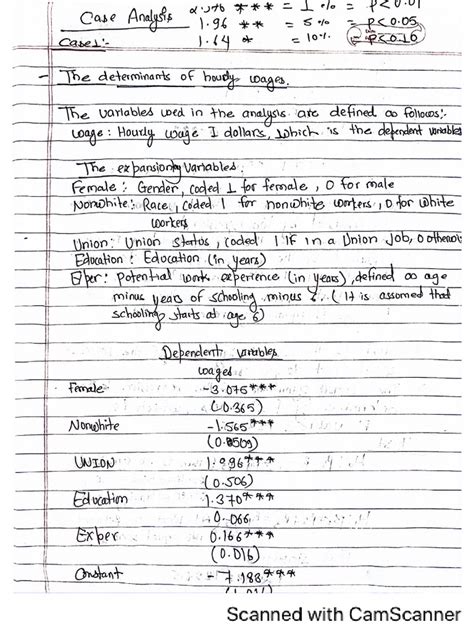 Case Analysis 2.576 *** = 1% = P<0.01
1.96 ** = 5% = P<0.05
Case1:- 1.64 * = 10% = P<0.10
- The determinants of hourly wages.
The variables used in the analysis are defined as follows:
wage: Hourly wage I dollars, which is the dependent variables
The expansionly variables.
Female: Gender, coded 1 for female, 0 for male
Nonwhite: Race, coded 1 for nonwhite workers, 0 for white
workers
Union: Union status, coded 1 if in a Union Job, 0 otherwise
Education: Education (in years)
Exper: Potential work experience (in years), defined as age
minus years of schooling minus 6. (It is assumed that
schooling starts at age 6)
Dependent variables
wages
Female -3.075***
(0.365)
Nonwhite -1.565***
(0.509)
UNION 1.996***
(0.506)
Education 1.370***
0.066
Exper 0.166***
(0.016)
Constant -7.183***
Scanned with CamScanner